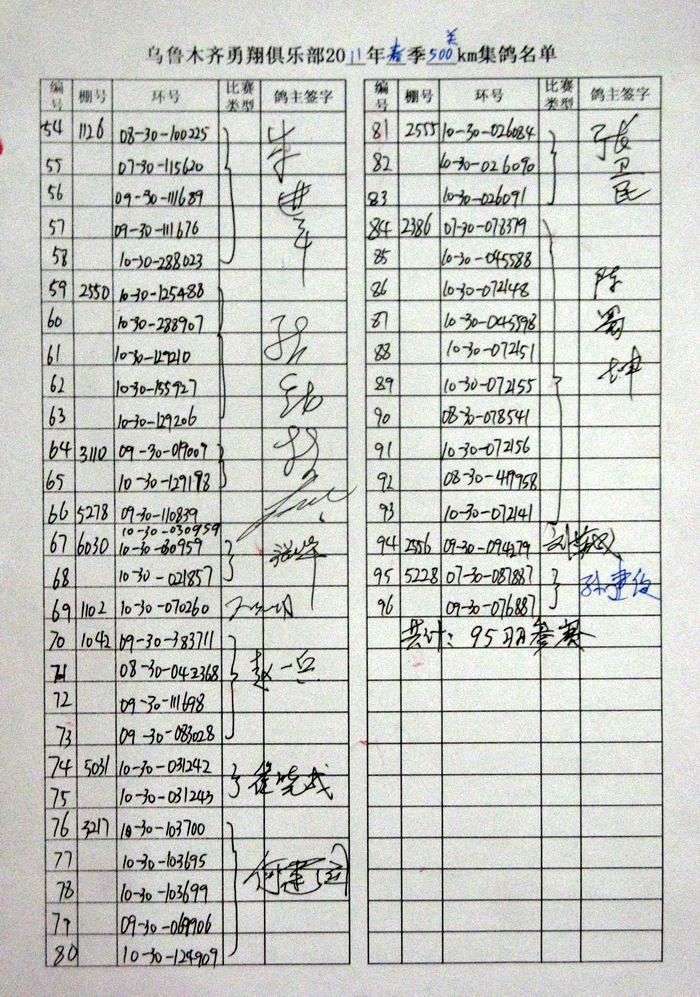 乌鲁木齐勇翔俱乐部2011年春季500km集鸽名单
关
编号 棚号 环号 比赛类型 鸽主签字
54 1126 08-30-100225
55 07-30-115620
56 09-30-111689
57 09-30-111676
58 10-30-288023
59 2550 10-30-125488
60 10-30-288907
61 10-30-129210
62 10-30-155927
63 10-30-129206
64 3110 09-30-09009
65 10-30-129198
66 5278 09-30-110839
10-30-030959
67 6030 10-30-30959 张峰
68 10-30-021857
69 1102 10-30-070260
70 1042 09-30-383711
71 08-30-042368 赵一兵
72 09-30-111698
73 09-30-083028
74 5031 10-30-031242
75 10-30-031243
76 3217 10-30-103700
77 10-30-103695
78 10-30-103699
79 09-30-069906
80 10-30-124909
编号 棚号 环号 比赛类型 鸽主签字
81 2555 10-30-026084 张卫民
82 10-30-026090
83 10-30-026091
84 2386 07-30-078379
85 10-30-045588
86 10-30-072148
87 10-30-045598
88 10-30-072151
89 10-30-072155
90 08-30-078541
91 10-30-072156
92 08-30-419958
93 10-30-072141
94 2556 09-30-094279
95 5228 07-30-087887 孙建俊
96 09-30-076887
共计：95羽参赛